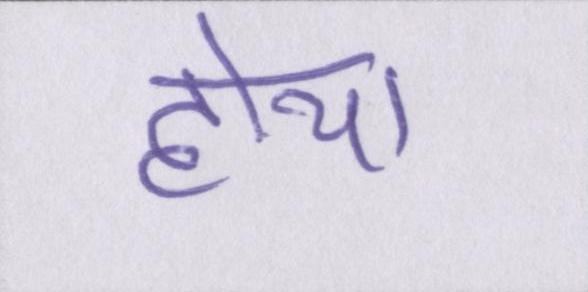 होया